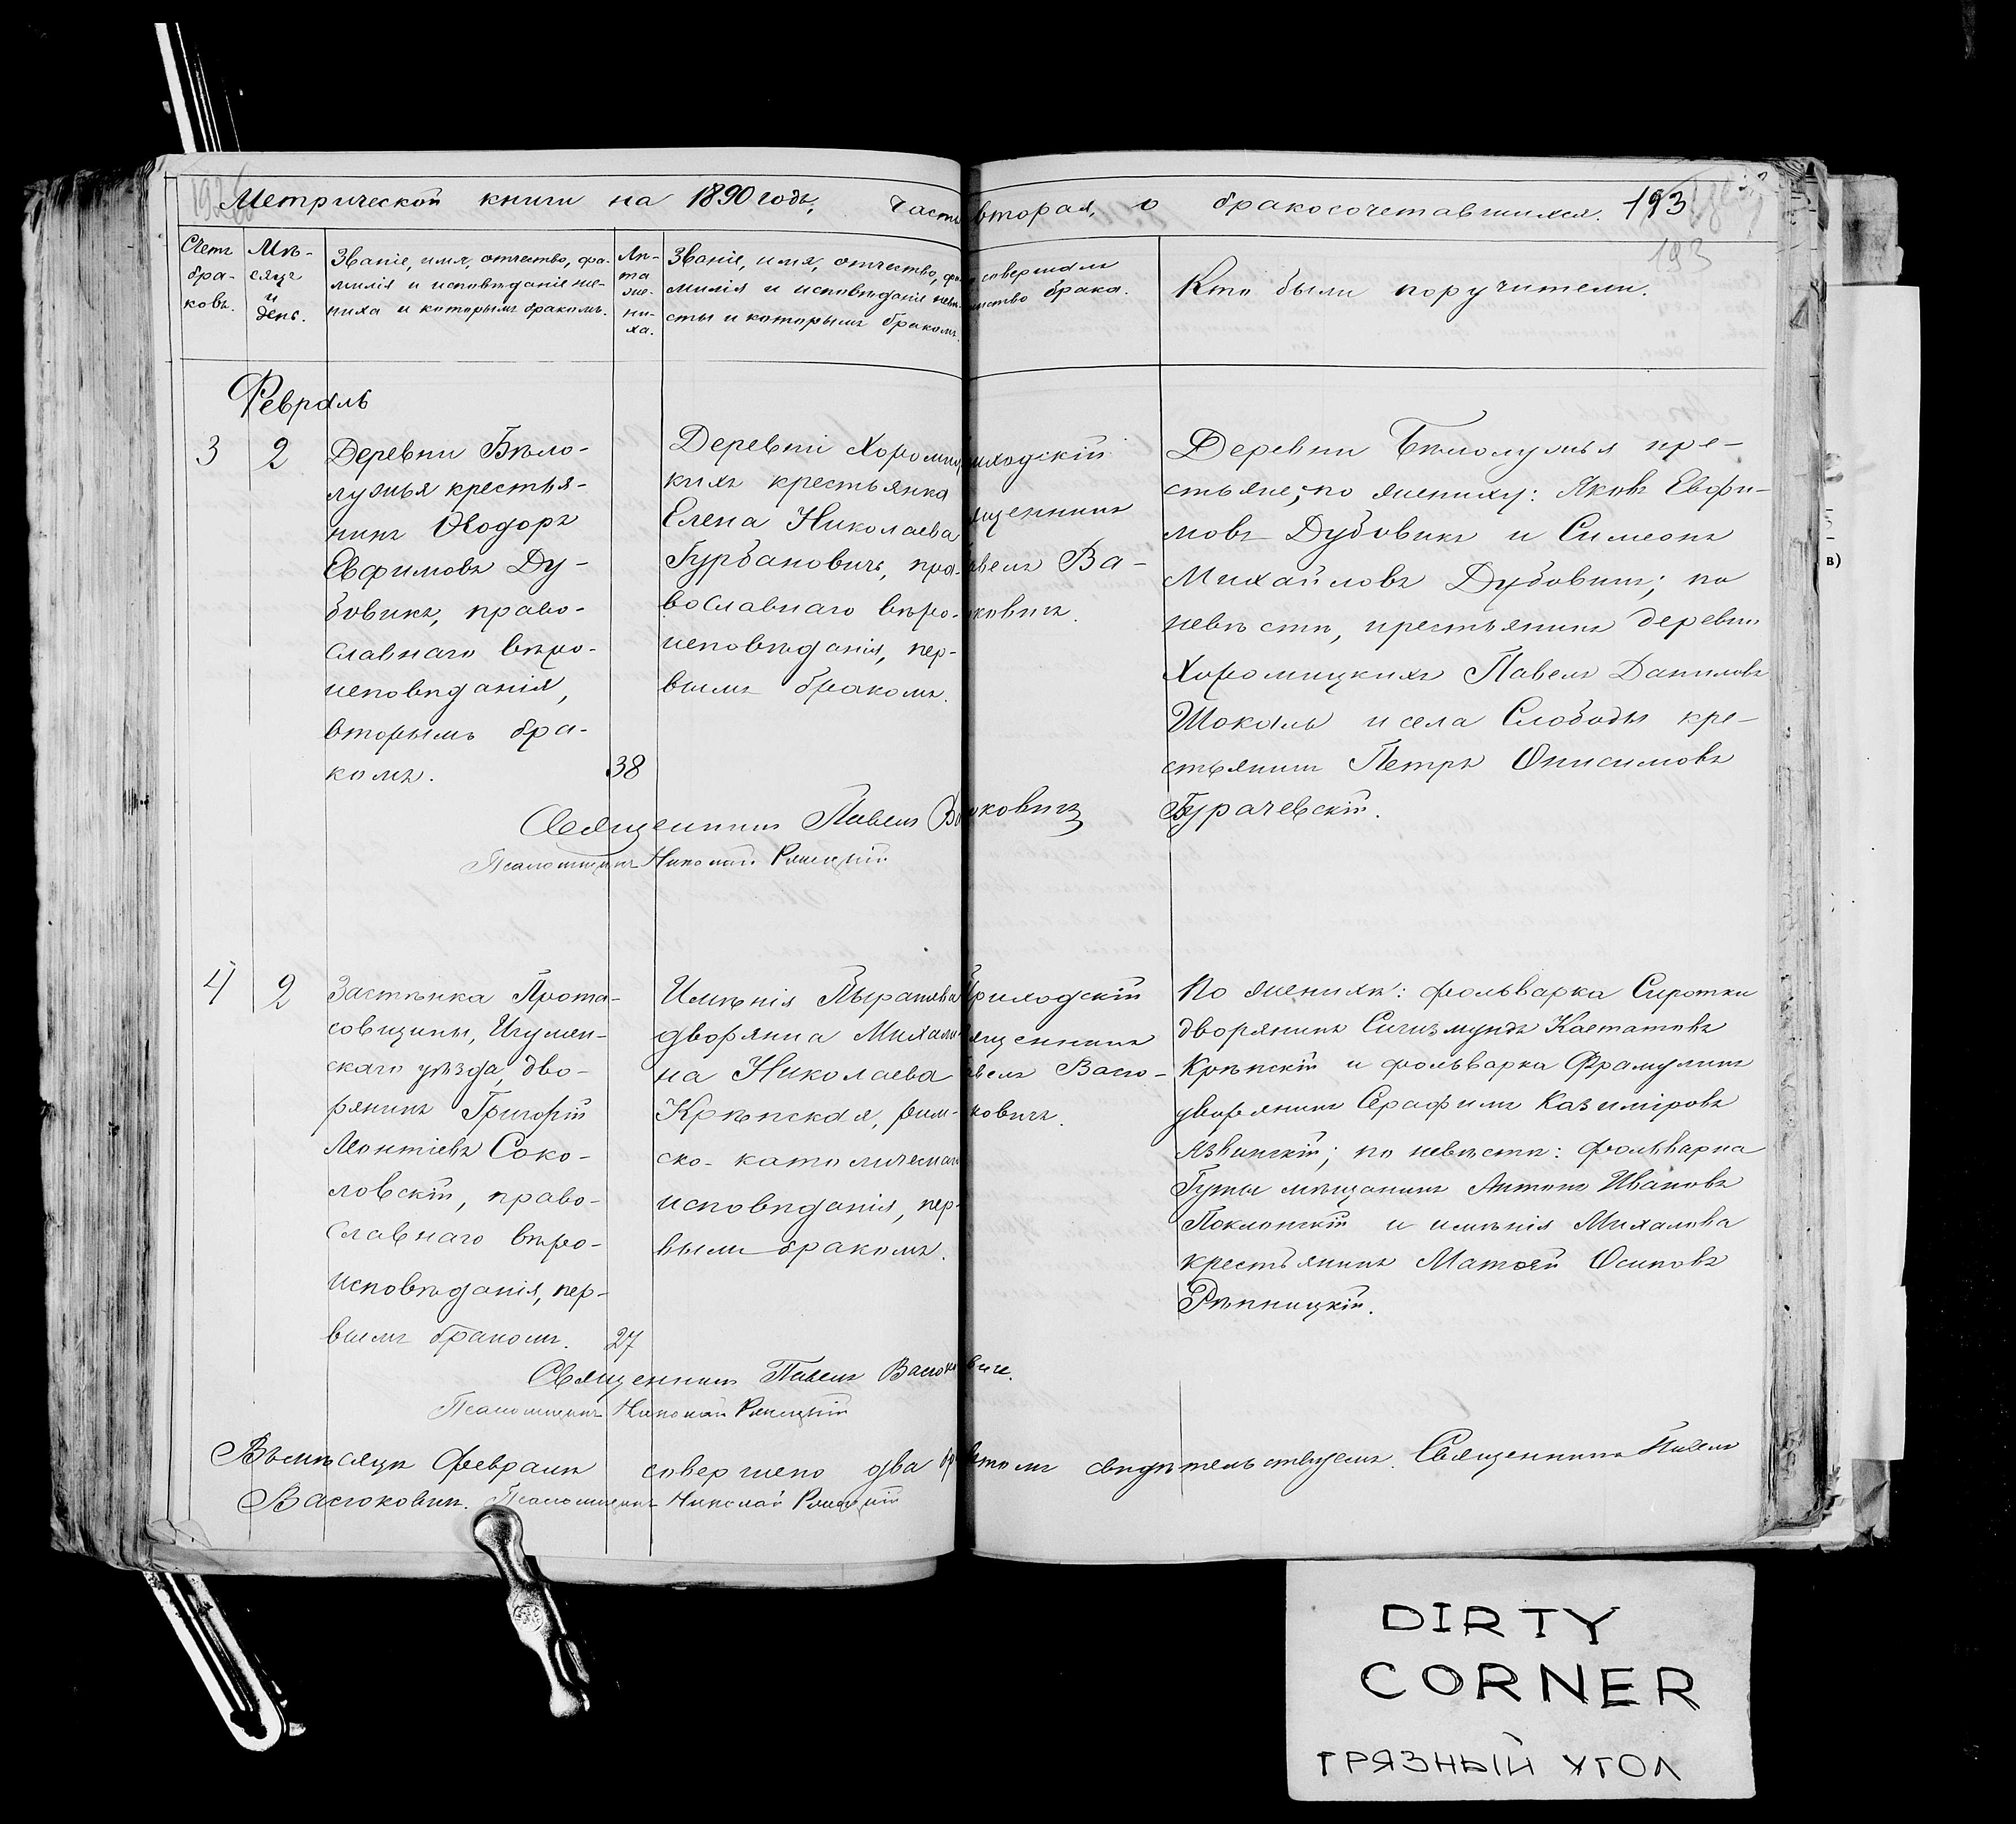 Метрической книги на 1890 годъ, часть вторая, о бракосочетавшихся. 193
193
Счетъ браковъ.
Мѣсяцъ и день.
Званіе, имя, отчество, фа-
милія и исповѣданіе же-
ниха и которымъ бракомъ.
Лѣ-
та
же-
ни-
ха.
Званіе, имя, отчество,
милія и исповѣданіе невѣ-
сты и которымъ бракомъ.
совершалъ
брака.
Кто были поручители.
Февраль
3 2
Деревни Бѣло-
лужья крестья-
нинъ Ѳеодоръ
Евфимовъ Ду-
бовикъ, право-
славнаго вѣро-
исповѣданія,
вторымъ бра-
комъ.
38
Деревни
кихъ крестьянка
Елена Николаева
Гурбановичъ, пра-
вославнаго вѣро-
исповѣданія, пер-
вымъ бракомъ.
приходскій
священникъ
Павелъ Ва-
Деревни Бѣлолужья кре-
стьяне, по жениху: Яковъ Евфи-
мовъ Дубовикъ и Симеонъ
Михайловъ Дубовикъ; по
невѣстѣ, крестьянинъ деревни
Хоромицкихъ Павелъ Даниловъ
Шокаль и села Слободы кре-
стьянинъ Петръ Онисимовъ
Бурачевскій.
Священникъ Павелъ Васюковичъ
Псаломщикъ Николай
4 2
Застѣнка Прота-
совщины, Игумен-
скаго уѣзда, дво-
рянинъ Григорій
Леонтіевъ Соко-
ловскій, право-
славнаго вѣро-
исповѣданія, пер-
вымъ бракомъ.
27
Имѣнія
дворянка Михали-
на Николаева
Крѣпская, рим-
ско-католическаго
исповѣданія, пер-
вымъ бракомъ.
Приходскій
священникъ
Павелъ Васю-
ковичъ.
По женихѣ: фольварка Сиротки
дворянинъ Сигизмундъ
Крѣпскій и фольварка
дворянинъ Серафимъ Казиміровъ
Язвинскій; по невѣстѣ: фольварка
Гуты мѣщанинъ Антонъ Ивановъ
Поклонскій и имѣнія Михалова
крестьянинъ Матѳей Осиповъ
Рѣпницкій.
Священникъ Павелъ Васюковичъ.
Псаломщикъ Николай
Въ мѣсяцѣ Февралѣ совершено два свидѣтельствуемъ. Священникъ Павелъ
Васюковичъ. Псаломщикъ Николай
в)
DIRTY
CORNER
ГРЯЗНЫЙ УГОЛ